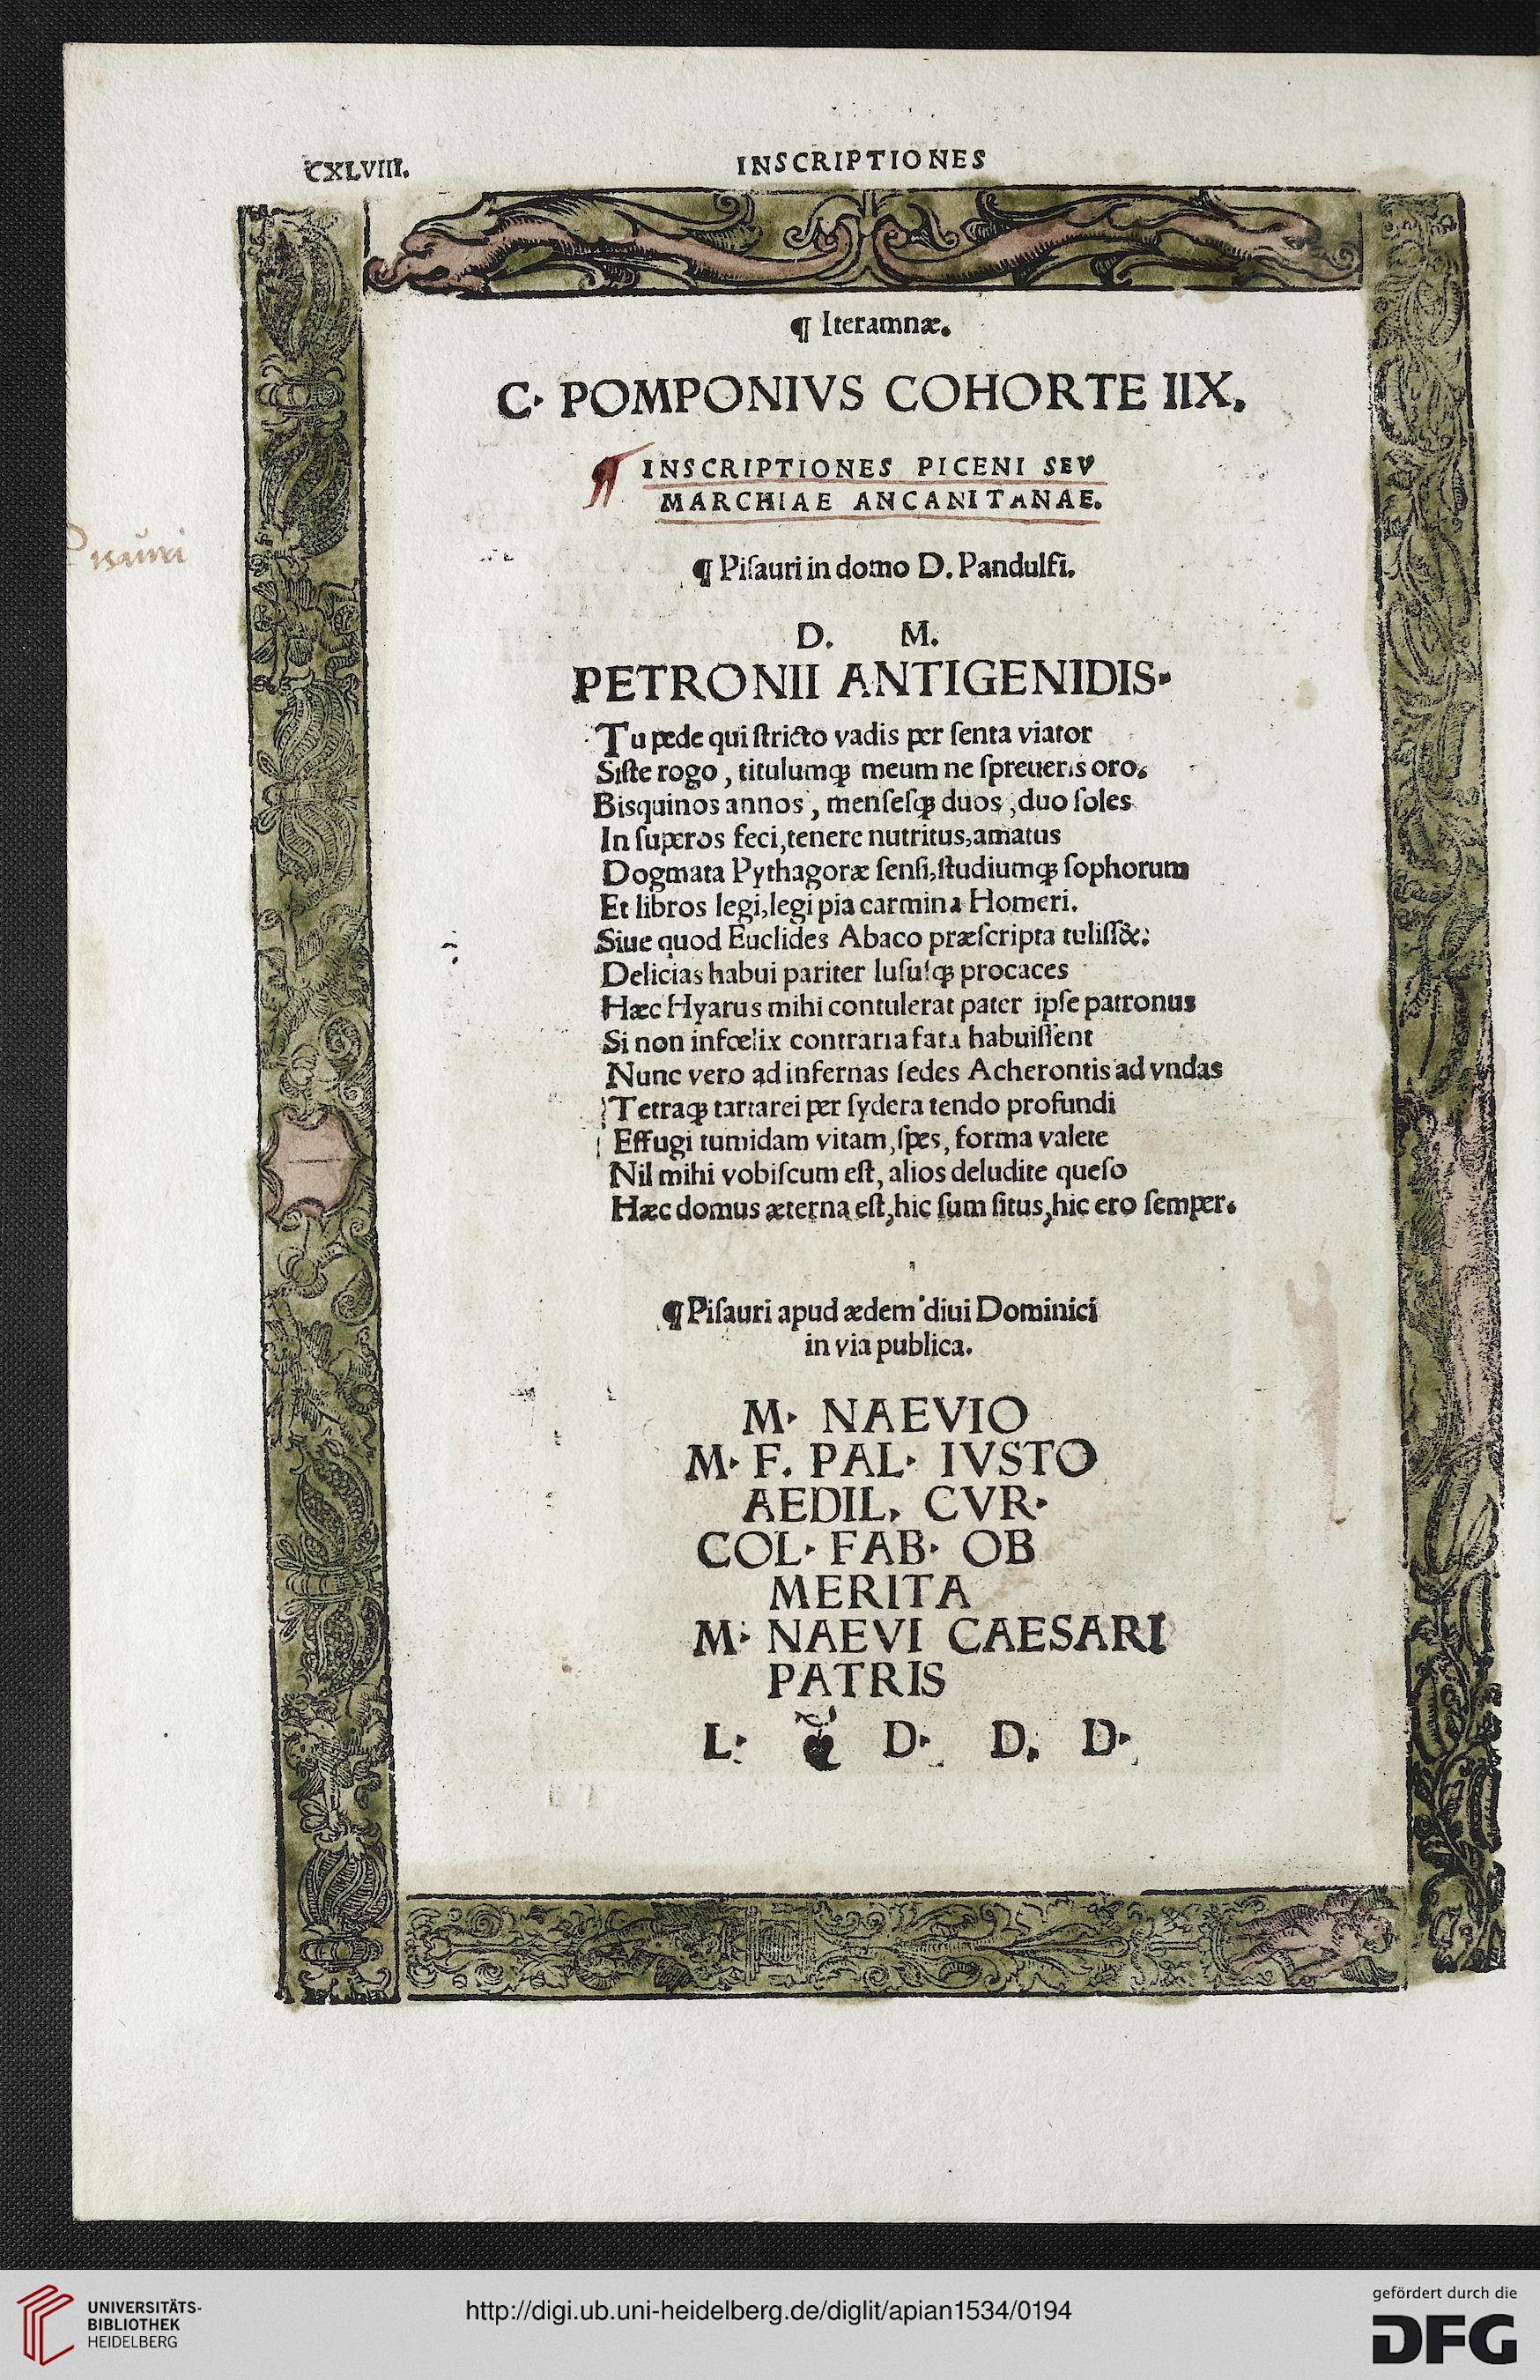 CXLVIII.
INSCRIPTIONES
¶ Iteramnæ.
C· POMPONIVS COHORTE IIX.
¶ INSCRIPTIONES PICENI SEV
MARCHIAE ANCANITANAE.
Pisauri
¶ Piſauri in domo D. Pandulfi.
D. M.
PETRONII ANTIGENIDIS·
Tu pede qui ſtricto vadis per ſenta viator
Siſte rogo, titulumqꝫ meum ne ſpreueris oro.
Bisquinos annos, menſeſqꝫ duos, duo ſoles
In ſuperos feci, tenere nutritus, amatus
Dogmata Pythagoræ ſenſi, ſtudiumqꝫ ſophorum
Et libros legi, legi pia carmina Homeri.
Siue quod Euclides Abaco præſcripta tuliſſ&:
Delicias habui pariter luſuſqꝫ procaces
Hæc Hyarus mihi contulerat pater ipſe patronus
Si non infœlix contraria fata habuiſſent
Nunc vero ad infernas ſedes Acherontis ad vndas
Tetraqꝫ tartarei per ſydera tendo profundi
Effugi tumidam vitam, ſpes, forma valete
Nil mihi vobiſcum eſt, alios deludite queſo
Hæc domus æterna eſt, hic ſum ſitus, hic ero ſemper.
¶ Piſauri apud ædem diui Dominici
in via publica.
M· NAEVIO
M· F. PAL· IVSTO
AEDIL, CVR·
COL· FAB· OB
MERITA
M· NAEVI CAESARI
PATRIS
L· ❦ D· D. D·
UNIVERSITÄTS-
BIBLIOTHEK
HEIDELBERG
http://digi.ub.uni-heidelberg.de/diglit/apian1534/0194
gefördert durch die
DFG